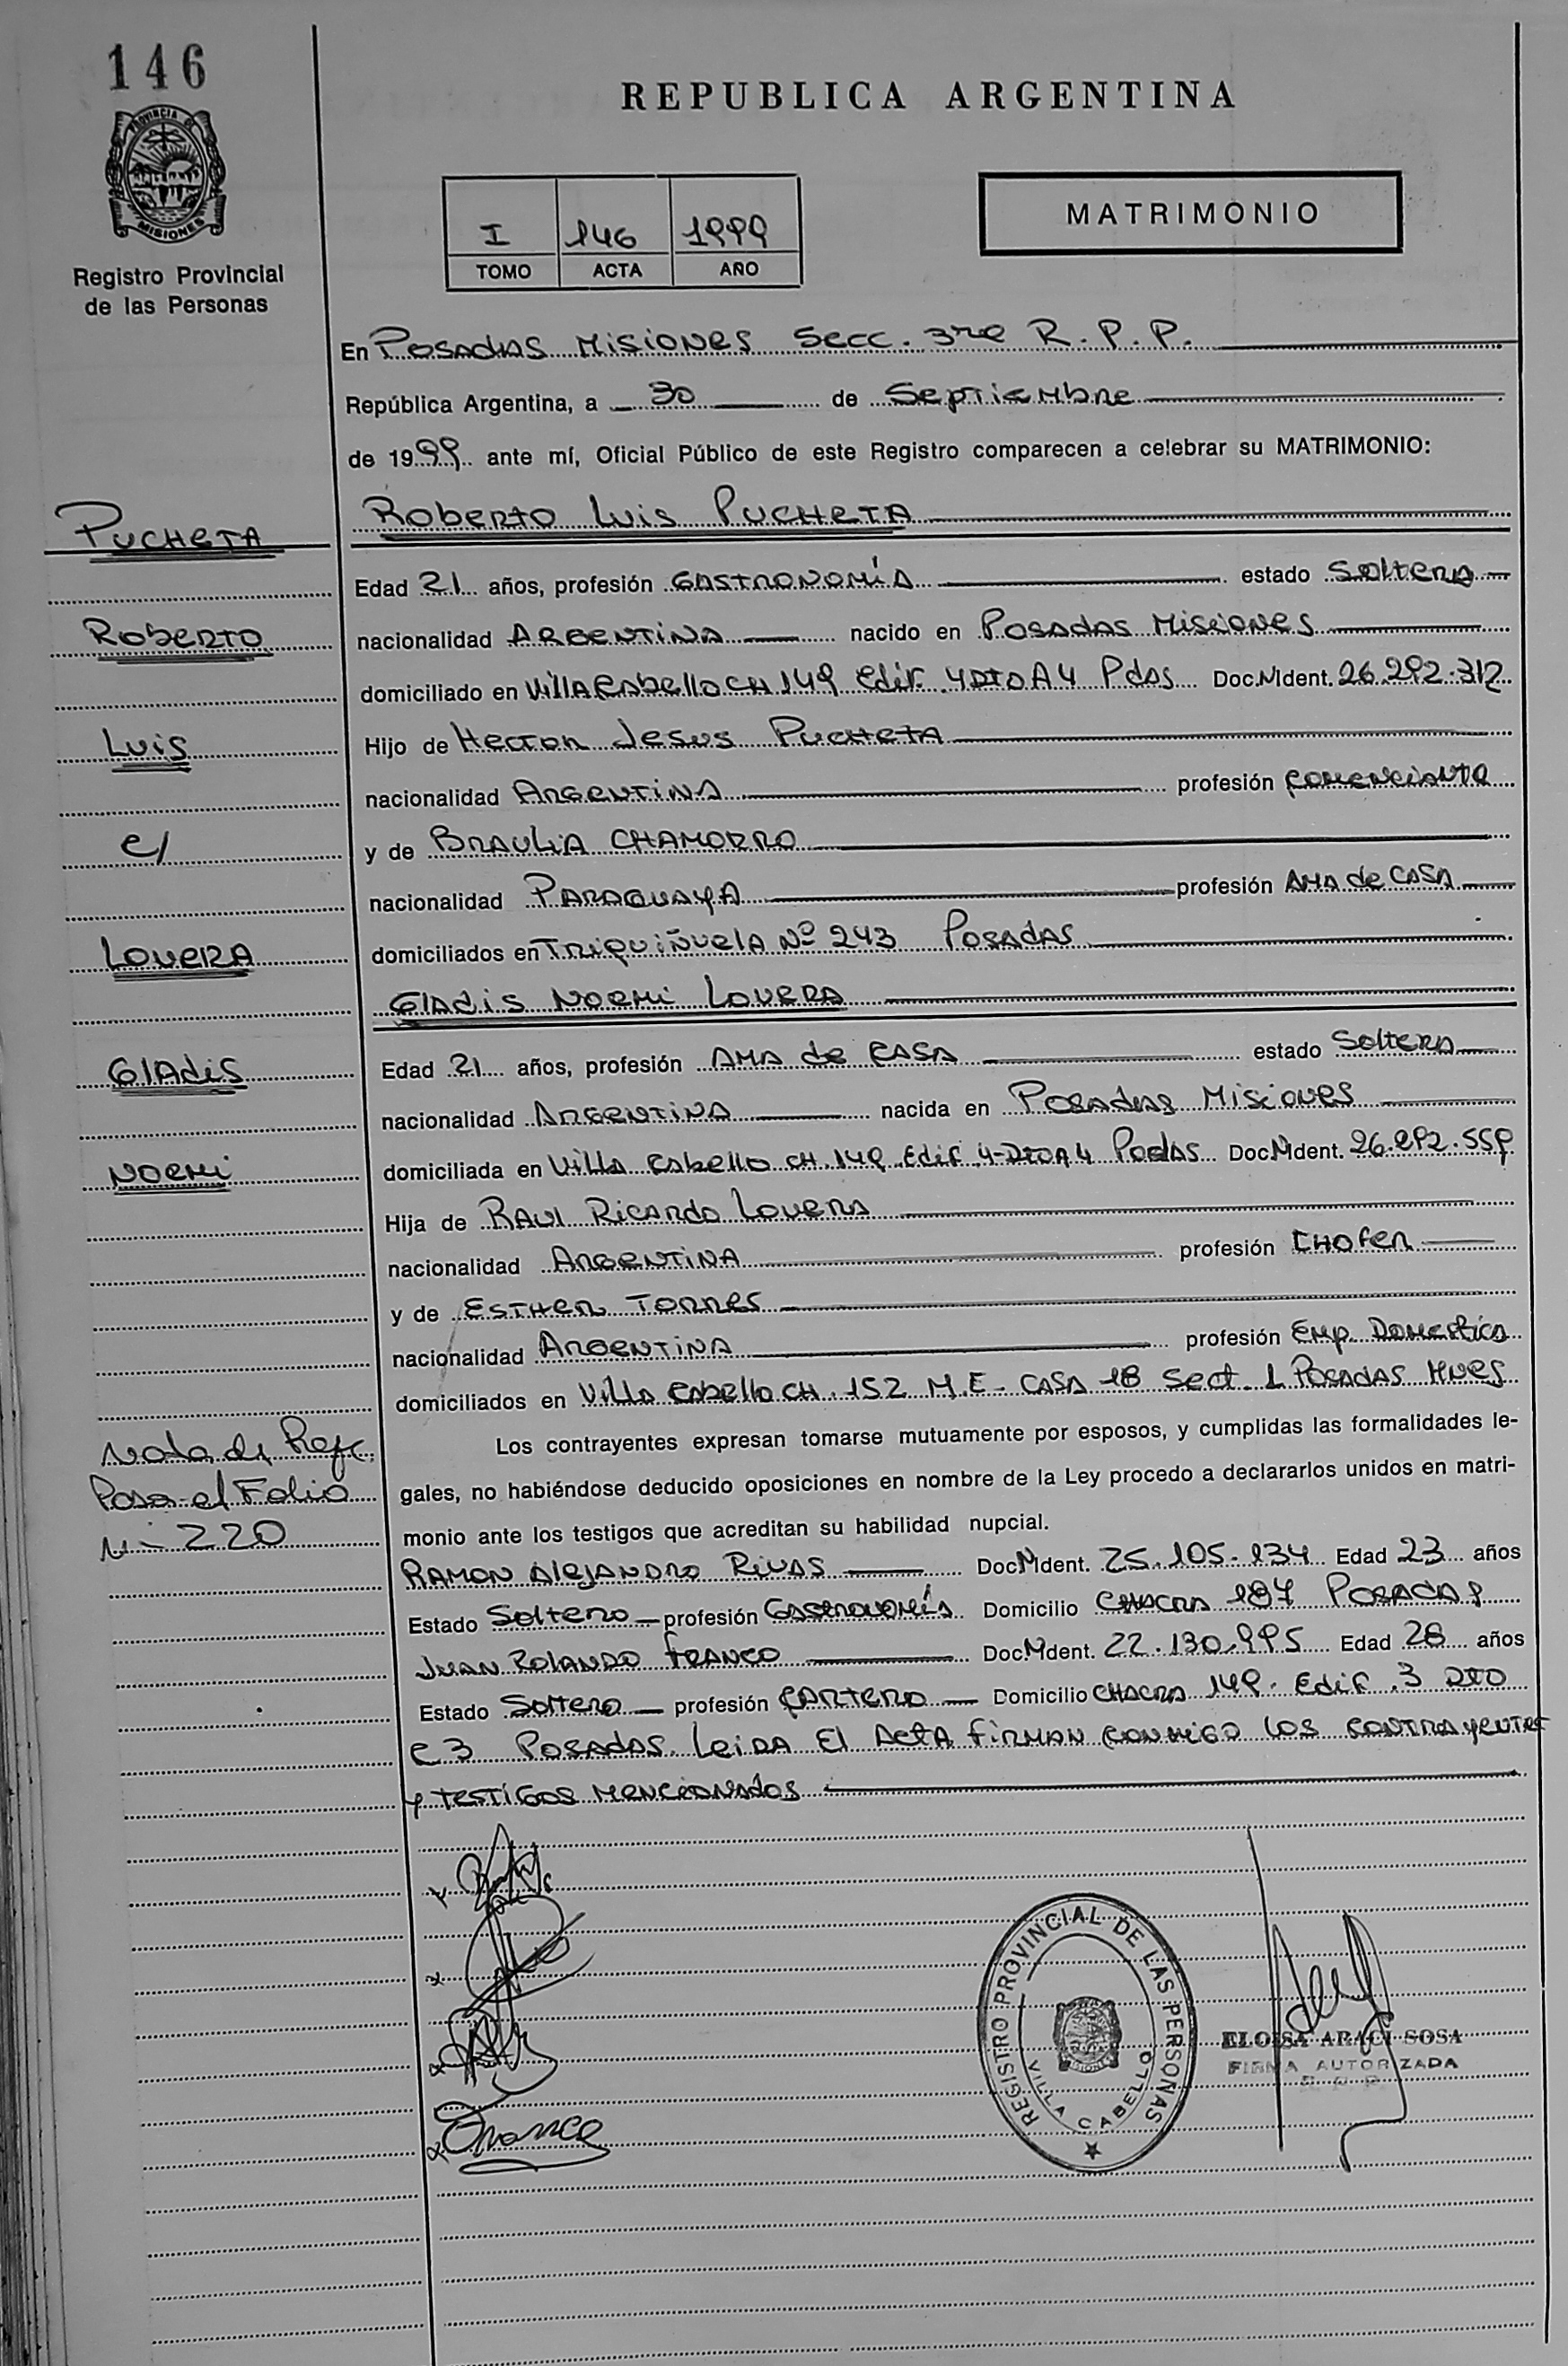 146
REPUBLICA ARGENTINA
PROVINCIA DE MISIONES
Registro Provincial
de las Personas
I 146 1999
TOMO ACTA AÑO
MATRIMONIO
En Posadas Misiones Secc. 3ra R. P. P.
República Argentina, a 30 de Septiembre
de 1999 ante mí, Oficial Público de este Registro comparecen a celebrar su MATRIMONIO:
Pucheta
Roberto Luis Pucheta
Edad 21 años, profesión Gastronomía estado Soltero
Roberto
nacionalidad Argentina nacido en Posadas Misiones
domiciliado en Villa Cabello CH 149 Edif. 4 Dto A4 Pdas Doc.N.Ident. 26.292.312
Luis
Hijo de Hector Jesus Pucheta
nacionalidad Argentina profesión Comerciante
c/
y de Braulia CHAMORRO
nacionalidad Paraguaya profesión Ama de casa
Lovera
domiciliados en Triquiñuela Nº 243 Posadas
Gladis Noemi Lovera
Gladis
Edad 21 años, profesión Ama de casa estado Soltera
nacionalidad Argentina nacida en Posadas Misiones
Noemi
domiciliada en Villa Cabello CH 149 Edif 4-Dto A4 Podas Doc.N.Ident. 26.292.559
Hija de Raul Ricardo Lovera
nacionalidad Argentina profesión Chofer
y de Esther Torres
nacionalidad Argentina profesión Emp. Domestica
domiciliados en Villa Cabello CH. 152 M.E- Casa 18 Sect 1 Posadas Mnes
Nota de Refc.
Pasa el Folio
Nº 220
Los contrayentes expresan tomarse mutuamente por esposos, y cumplidas las formalidades le-
gales, no habiéndose deducido oposiciones en nombre de la Ley procedo a declararlos unidos en matri-
monio ante los testigos que acreditan su habilidad nupcial.
Ramon Alejandro Rivas Doc.N.Ident. 25.105.934 Edad 23 años
Estado Soltero profesión Gastronomía Domicilio Chacra 187 Posadas
Juan Rolando Franco Doc.N.Ident. 22.130.995 Edad 28 años
Estado Soltero profesión Cartero Domicilio Chacra 149. Edif. 3 Dto
C3 Posadas Leida El Acta firman conmigo los contrayentes
y testigos mencionados
Franco
REGISTRO PROVINCIAL DE LAS PERSONAS
VILLA CABELLO
ELOISA ARACI SOSA
FIRMA AUTORIZADA
R. P. P.